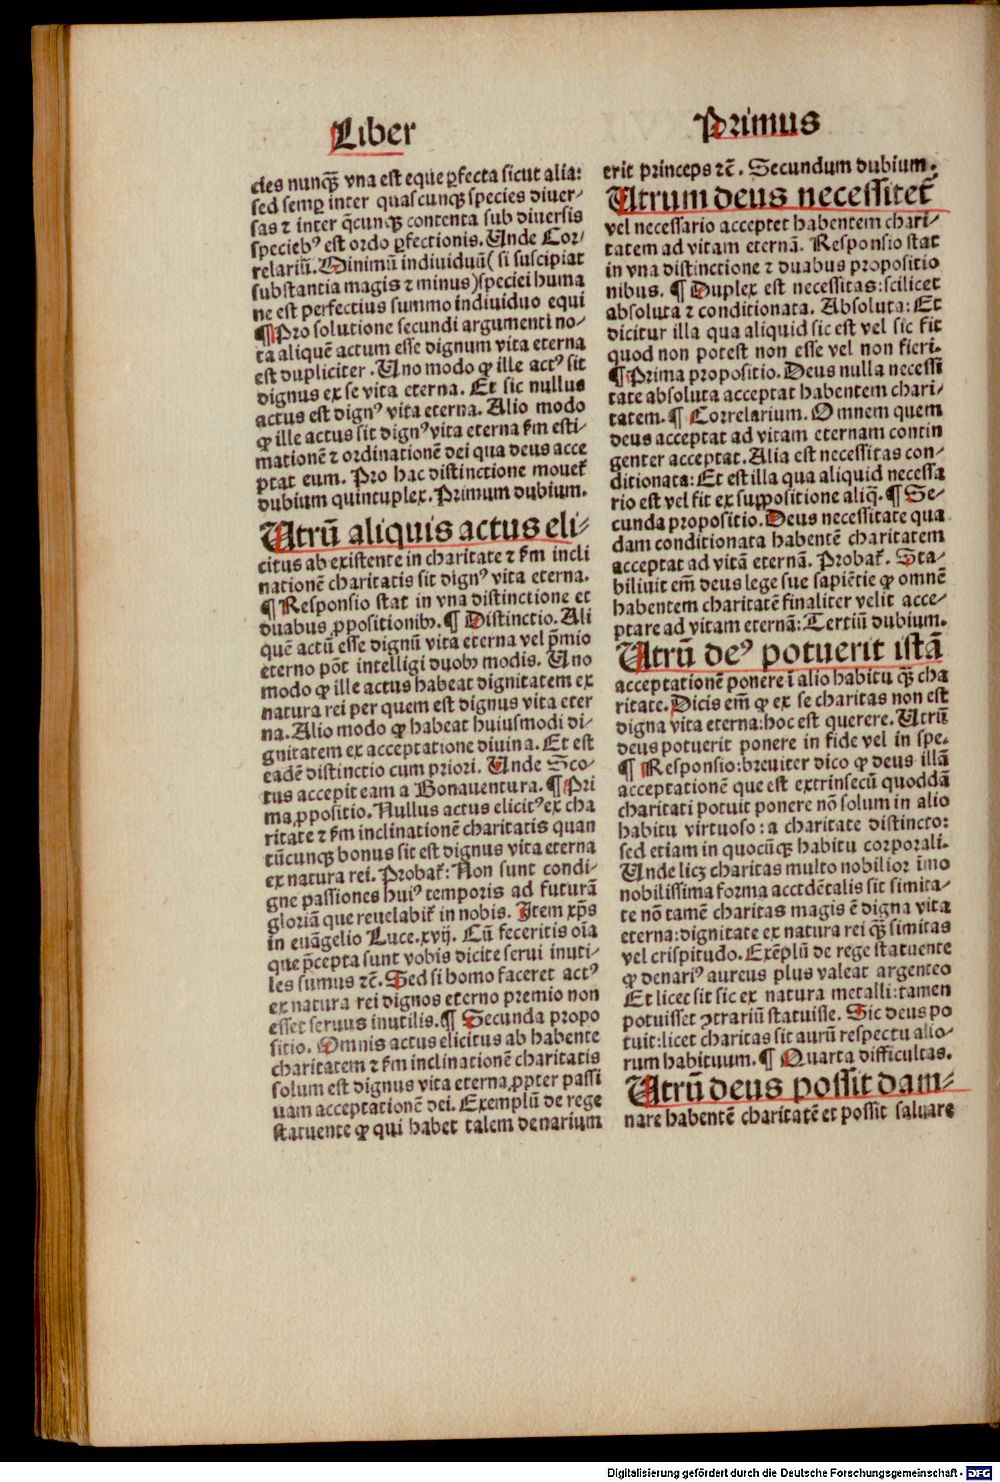 Liber
cies nunqꝫ vna est eque ꝑfecta sicut alia:
sed semꝑ inter quascunqꝫ species diuer-
sas ⁊ inter q̄cunqꝫ contenta sub diuersis
specieb⁹ est ordo ꝑfectionis. Unde Cor-
relariū. Minimū indiuiduū (si suscipiat
substantia magis ⁊ minus) speciei huma
ne est perfectius summo indiuiduo equi
¶ Pro solutione secundi argumenti no-
ta aliquē actum esse dignum vita eterna
est dupliciter. Uno modo ꝙ ille act⁹ sit
dignus ex se vita eterna. Et sic nullus
actus est dign⁹ vita eterna. Alio modo
ꝙ ille actus sit dign⁹ vita eterna ẜm esti-
mationē ⁊ ordinationē dei qua deus acce
ptat eum. Pro hac distinctione mouet᷑
dubium quintuplex. Primum dubium.
Utrū aliquis actus eli-
citus ab existente in charitate ⁊ ẜm incli
nationē charitatis sit dign⁹ vita eterna.
¶ Responsio stat in vna distinctione et
duabus ꝓpositionibꝫ. ¶ Distinctio. Ali
quē actū esse dignū vita eterna vel p̄mio
eterno pōt intelligi duobꝫ modis. Uno
modo ꝙ ille actus habeat dignitatem ex
natura rei per quem est dignus vita eter
na. Alio modo ꝙ habeat huiusmodi di-
gnitatem ex acceptatione diuina. Et est
eadē distinctio cum priori. Unde Sco-
tus accepit eam a Bonauentura. ¶ Pri
ma ꝓpositio. Nullus actus elicit⁹ ex cha
ritate ⁊ ẜm inclinationē charitatis quan
tūcunqꝫ bonus sit est dignus vita eterna
ex natura rei. Probat᷑: Non sunt condi-
gne passiones hui⁹ temporis ad futurā
gloriā que reuelabit᷑ in nobis. Item xp̄s
in euāgelio Luce. xvij. Cū feceritis oīa
que p̄cepta sunt vobis dicite serui inuti-
les sumus ⁊c̄. Sed si homo faceret act⁹
ex natura rei dignos eterno premio non
esset seruus inutilis. ¶ Secunda propo
sitio. Omnis actus elicitus ab habente
charitatem ⁊ ẜm inclinationē charitatis
solum est dignus vita eterna, ꝓpter passi
uam acceptationē dei. Exemplū de rege
statuente ꝙ qui habet talem denarium
Primus
erit princeps ⁊c̄. Secundum dubium.
Utrum deus necessitet᷑
vel necessario acceptet habentem chari-
tatem ad vitam eternā. Responsio stat
in vna distinctione ⁊ duabus propositio
nibus. ¶ Duplex est necessitas: scilicet
absoluta ⁊ conditionata. Absoluta: Et
dicitur illa qua aliquid sic est vel sic fit
quod non potest non esse vel non fieri.
¶ Prima propositio. Deus nulla necessi
tate absoluta acceptat habentem chari-
tatem. ¶ Correlarium. Omnem quem
deus acceptat ad vitam eternam contin
genter acceptat. Alia est necessitas con-
ditionata: Et est illa qua aliquid necessa
rio est vel fit ex suppositione aliq̄. ¶ Se-
cunda propositio. Deus necessitate qua
dam conditionata habentē charitatem
acceptat ad vitā eternā. Probat᷑. Sta-
biliuit em̄ deus lege sue sapiētie ꝙ omnē
habentem charitatē finaliter velit acce-
ptare ad vitam eternā: Tertiū dubium.
Utrū de⁹ potuerit istā
acceptationē ponere ī alio habitu qꝫ cha
ritate. Dicis em̄ ꝙ ex se charitas non est
digna vita eterna: hoc est querere. Utrū
deus potuerit ponere in fide vel in spe.
¶ Responsio: breuiter dico ꝙ deus illā
acceptationē que est extrinsecū quoddā
charitati potuit ponere nō solum in alio
habitu virtuoso: a charitate distincto:
sed etiam in quocūqꝫ habitu corporali.
Unde licꝫ charitas multo nobilior īmo
nobilissima forma accīdētalis sit simita-
te nō tamē charitas magis ē digna vita
eterna: dignitate ex natura rei qꝫ simitas
vel crispitudo. Exēplū de rege statuente
ꝙ denari⁹ aureus plus valeat argenteo
Et licet sit sic ex natura metalli: tamen
potuisset ꝯtrariū statuisse. Sic deus po
tuit: licet charitas sit aurū respectu alio-
rum habituum. ¶ Quarta difficultas.
Utrū deus possit dam-
nare habentē charitatē et possit saluare
Digitalisierung gefördert durch die Deutsche Forschungsgemeinschaft - DFG